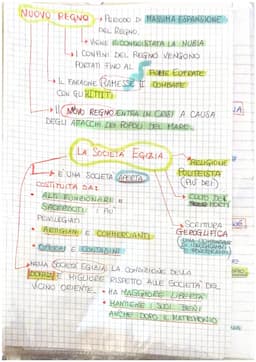 NUOVO REGNO → PERIODO DI MASSIMA ESPANSIONE
DEL REGNO.
→ VIENE RICONQUISTATA LA NUBIA
→ I CONFINI DEL REGNO VENGONO
PORTATI FINO AL
FIUME EUFRATE
→ IL FARAONE RAMESSE II COMBATTE
CON GLI ITTITI
→ IL NUOVO REGNO ENTRA IN CRISI A CAUSA
DEGLI ATTACCHI DEI POPOLI DEL MARE.
LA SOCIETÀ EGIZIA
→ È UNA SOCIETÀ
COSTITUITA DA:
• ALTI FUNZIONARI E
SACERDOTI I PIÙ
PRIVILEGIATI
• ARTIGIANI E COMMERCIANTI
• E CONTADINI
→ RELIGIONE
POLITEISTA
(PIÙ DEI)
→ CULTO DEI
→ SCRITTURA
GEROGLIFICA
→ NELLA SOCIETÀ EGIZIA LA CONDIZIONE DELLA
DONNA È MIGLIORE RISPETTO ALLE SOCIETÀ DEL
VICINO ORIENTE.
• HA MAGGIORE LIBERTÀ
• MANTIENE I SUOI BENI
ANCHE DOPO IL MATRIMONIO